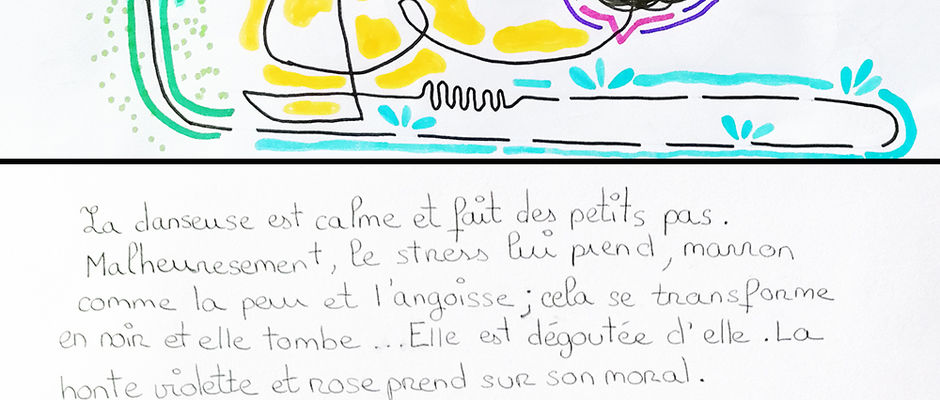 La danseuse est calme et fait des petits pas.
Malheuresement, le stress lui prend, marron
comme la peur et l'angoisse ; cela se transforme
en noir et elle tombe ... Elle est dégoutée d'elle. La
honte violette et rose prend sur son moral.